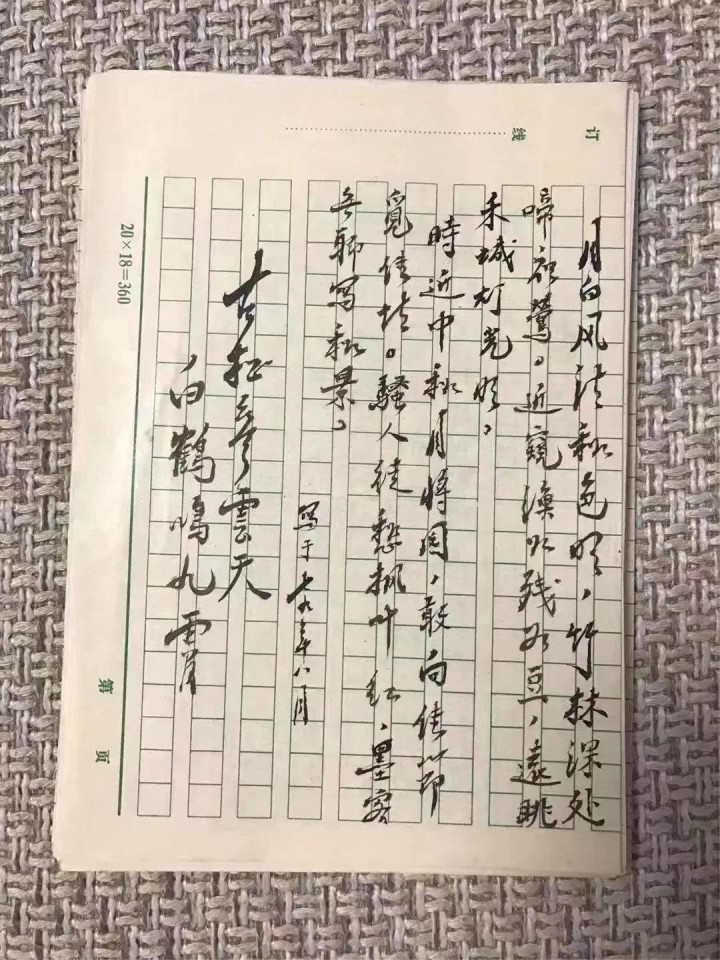 订 线
月白风清秋色明，竹林深处
啼夜莺。近窥渔火残如豆，遠眺
禾城灯光明。
時近中秋月将圆，敢向佳节
覓佳。騷人徒愁枫叶红，墨客
无聊写秋景。
写于年八月
古松参雲天
白鶴鳴九霄
20×18=360
第 页